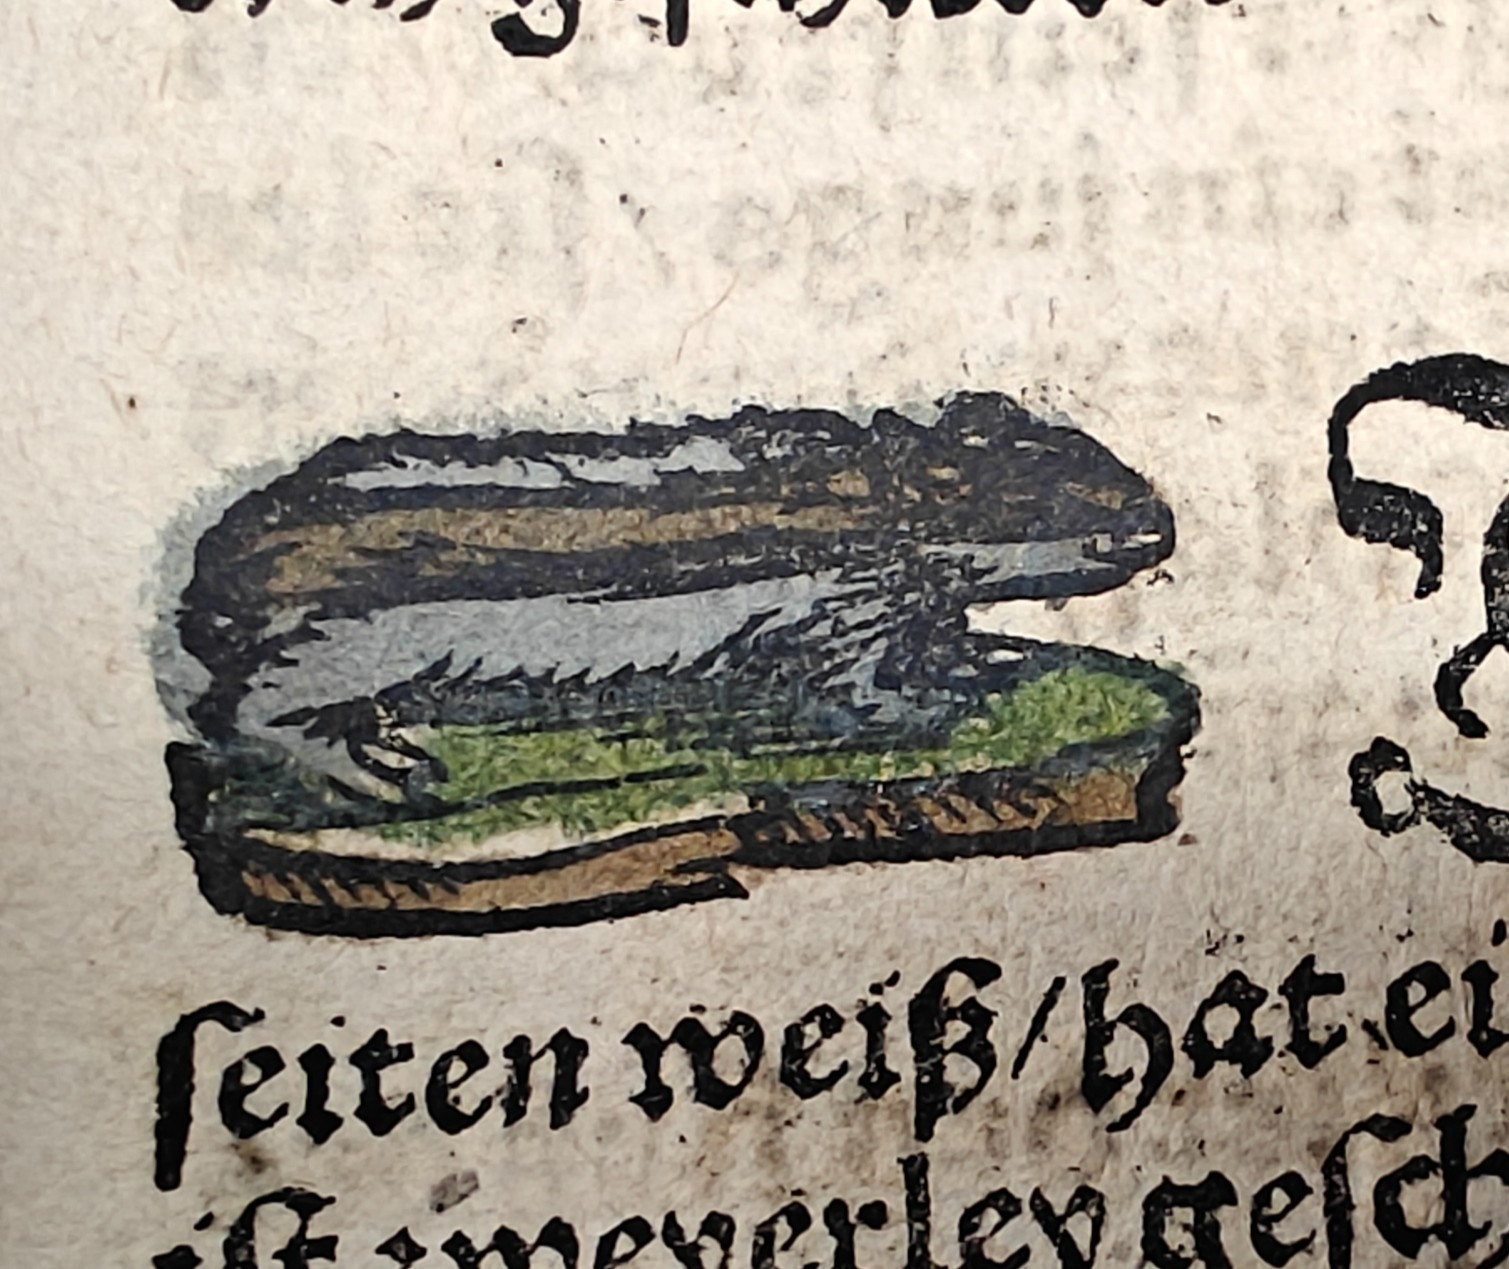 ſeiten weiß/hat ei
iſt zweyerley geſch